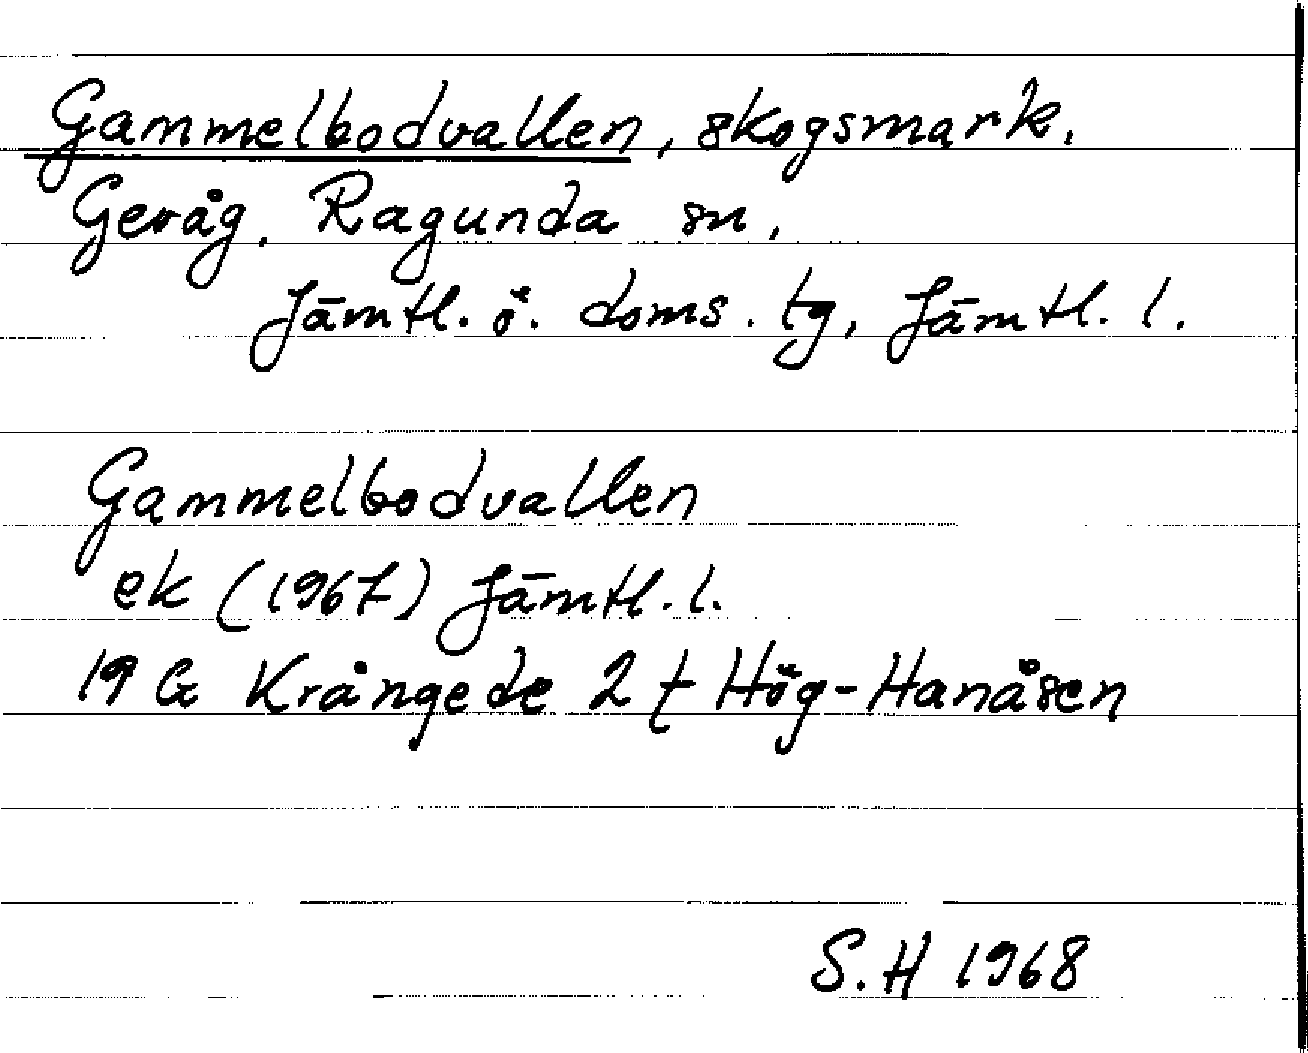 Gammelbodvallen, skogsmark.
Gevåg. Ragunda sn,
Jämtl. ö. doms. tg, Jämtl. l.
Gammelbodvallen
ek (1967) Jämtl. l.
19 G Krångede 2 f Hög-Hanåsen
S.H 1968